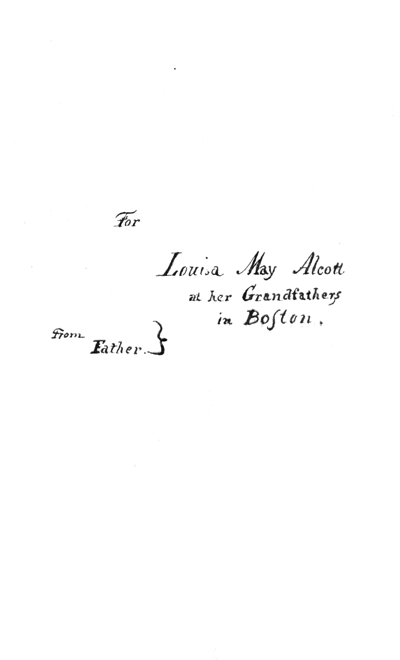 For
Louisa May Alcott
at her Grandfathers
in Boſton.
From
Father.}